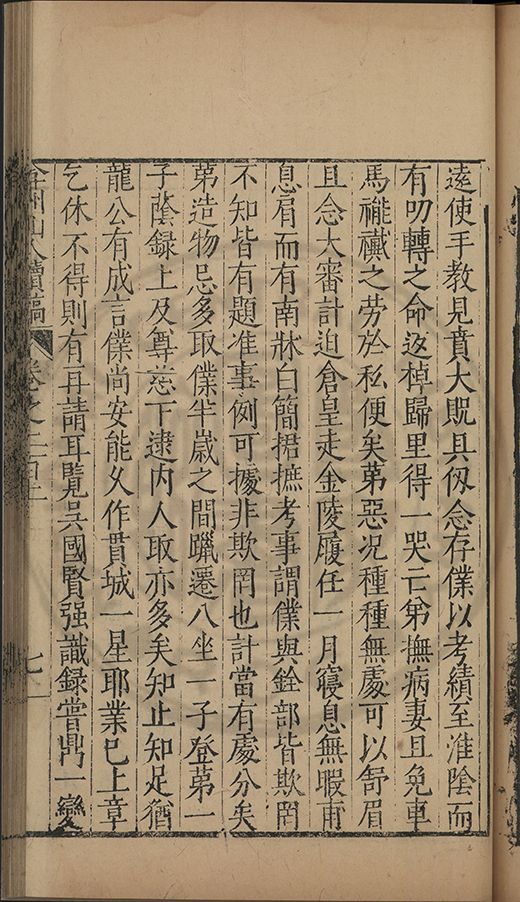 遠使手教見賁大貺具仭念存僕以考績至淮陰而
有叨轉之命返棹歸里得一哭亡弟撫病妻且免車
馬褦襶之勞於私便矣第惡况種種無處可以舒眉
且念大審計迫倉皇走金陵履任一月寢息無暇甫
息肩而有南牀白簡捃摭考事謂僕與銓部皆欺罔
不知皆有題准事例可據非欺罔也計當有處分矣
第造物忌多取僕半歲之間躐遷八坐一子登第一
子蔭録上及尊慈下逮内人取亦多矣知止知足猶
龍公有成言僕尚安能乆作貫城一星耶業已上章
乞休不得則有再請耳覽吳國賢强識録嘗鼎一臠
弇州山人續稿 卷之二百
七